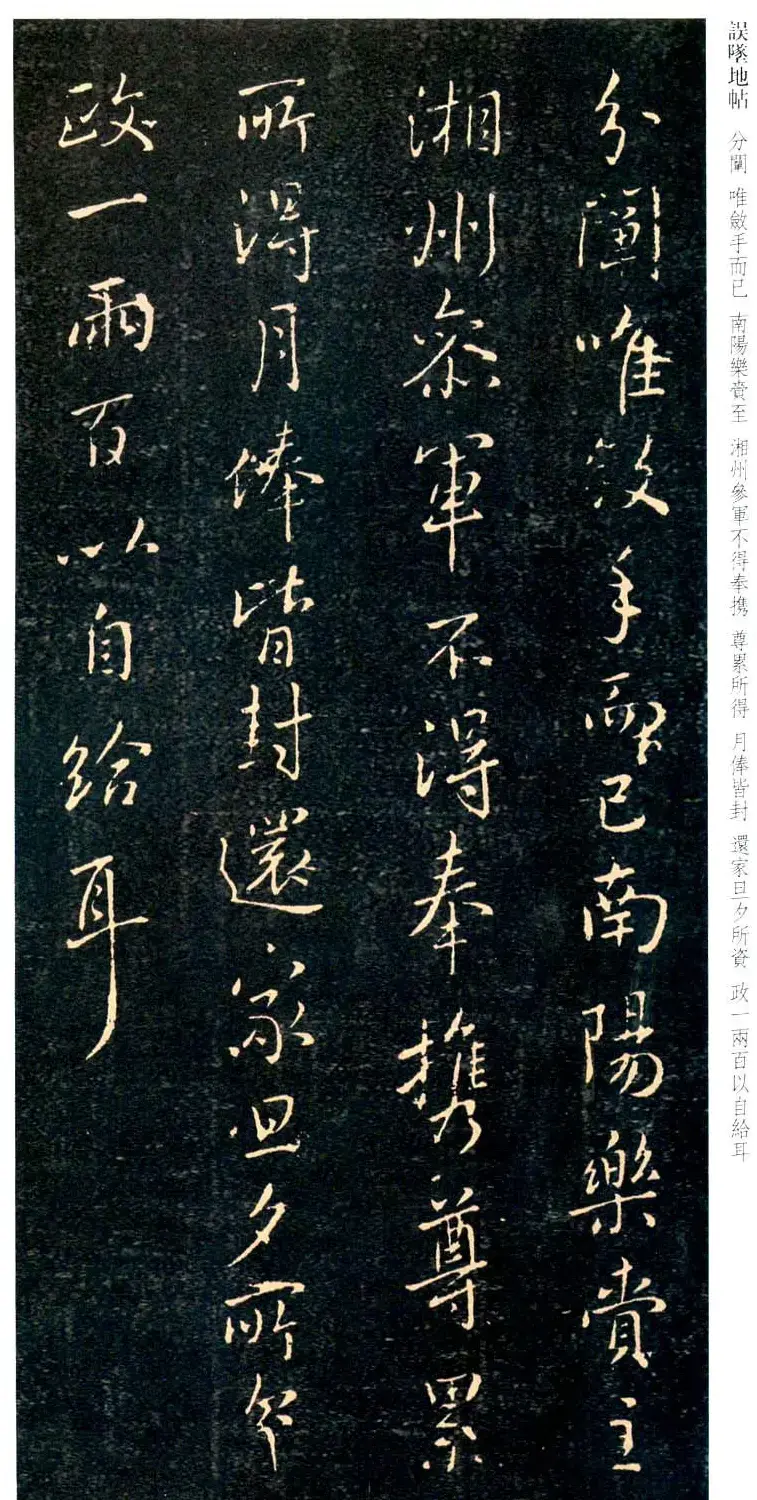 誤墜地帖 分闡 唯斂手而已 南陽樂賷至 湘州參軍不得奉攜 尊累所得 月俸皆封 還家旦夕所資 政一兩百以自給耳
分闡唯斂手而已南陽樂賷至
湘州參軍不得奉攜尊累
所得月俸皆封還家旦夕所資
政一兩百以自給耳